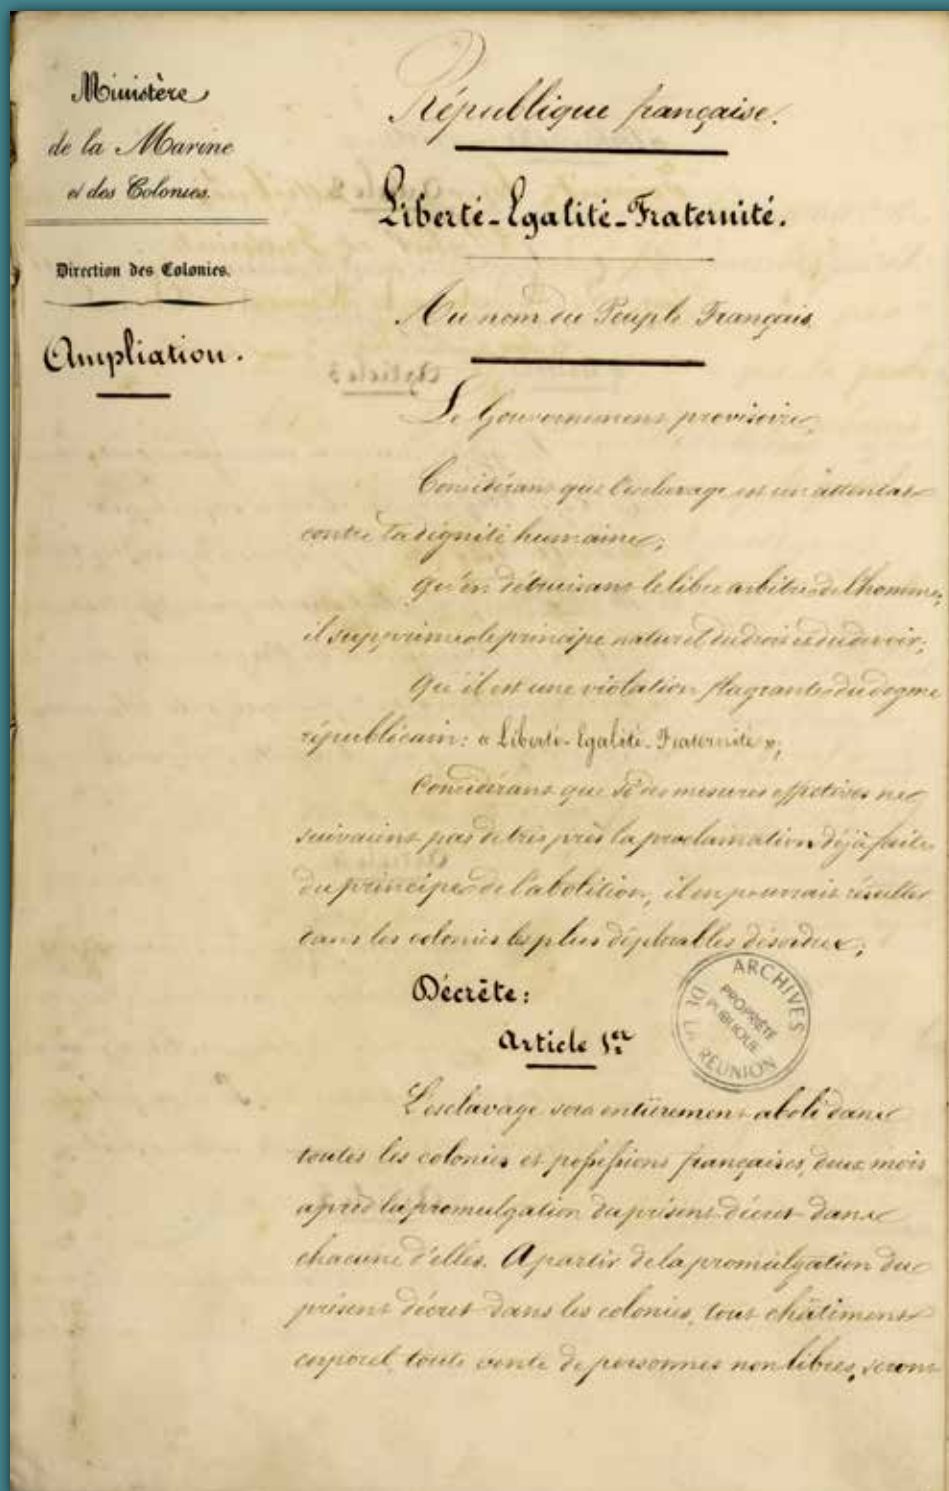 Ministère
de la Marine
et des Colonies.
Direction des Colonies.
Ampliation.
République française.
Liberté-Egalité-Fraternité.
Au nom du Peuple Français
Le Gouvernement provisoire,
Considérant que l'esclavage est un attentat
contre la dignité humaine;
Qu'en détruisant le libre arbitre de l'homme,
il supprime le principe naturel du droit et du devoir;
Qu'il est une violation flagrante du dogme
républicain: « Liberté-Egalité-Fraternité »;
Considérant que si des mesures effectives ne
suivaient pas de très près la proclamation déjà faite
du principe de l'abolition, il en pourrait résulter
dans les colonies les plus déplorables désordres;
Décrète:
Article 1er
ARCHIVES DE LA RÉUNION
PROPRIÉTÉ PUBLIQUE
L'esclavage sera entièrement aboli dans
toutes les colonies et possessions françaises, deux mois
après la promulgation du présent décret dans
chacune d'elles. A partir de la promulgation du
présent décret dans les colonies, tout châtiment
corporel, toute vente de personnes non libres, seront